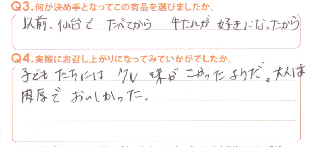 Q3.何が決め手となってこの商品を選びましたか。
以前、仙台で たべてから 牛たんが 好きになったから
Q4.実際にお召し上がりになってみていかがでしたか。
子どもたちには 少し 味が こかったようだ。大人は
肉厚で おいしかった。